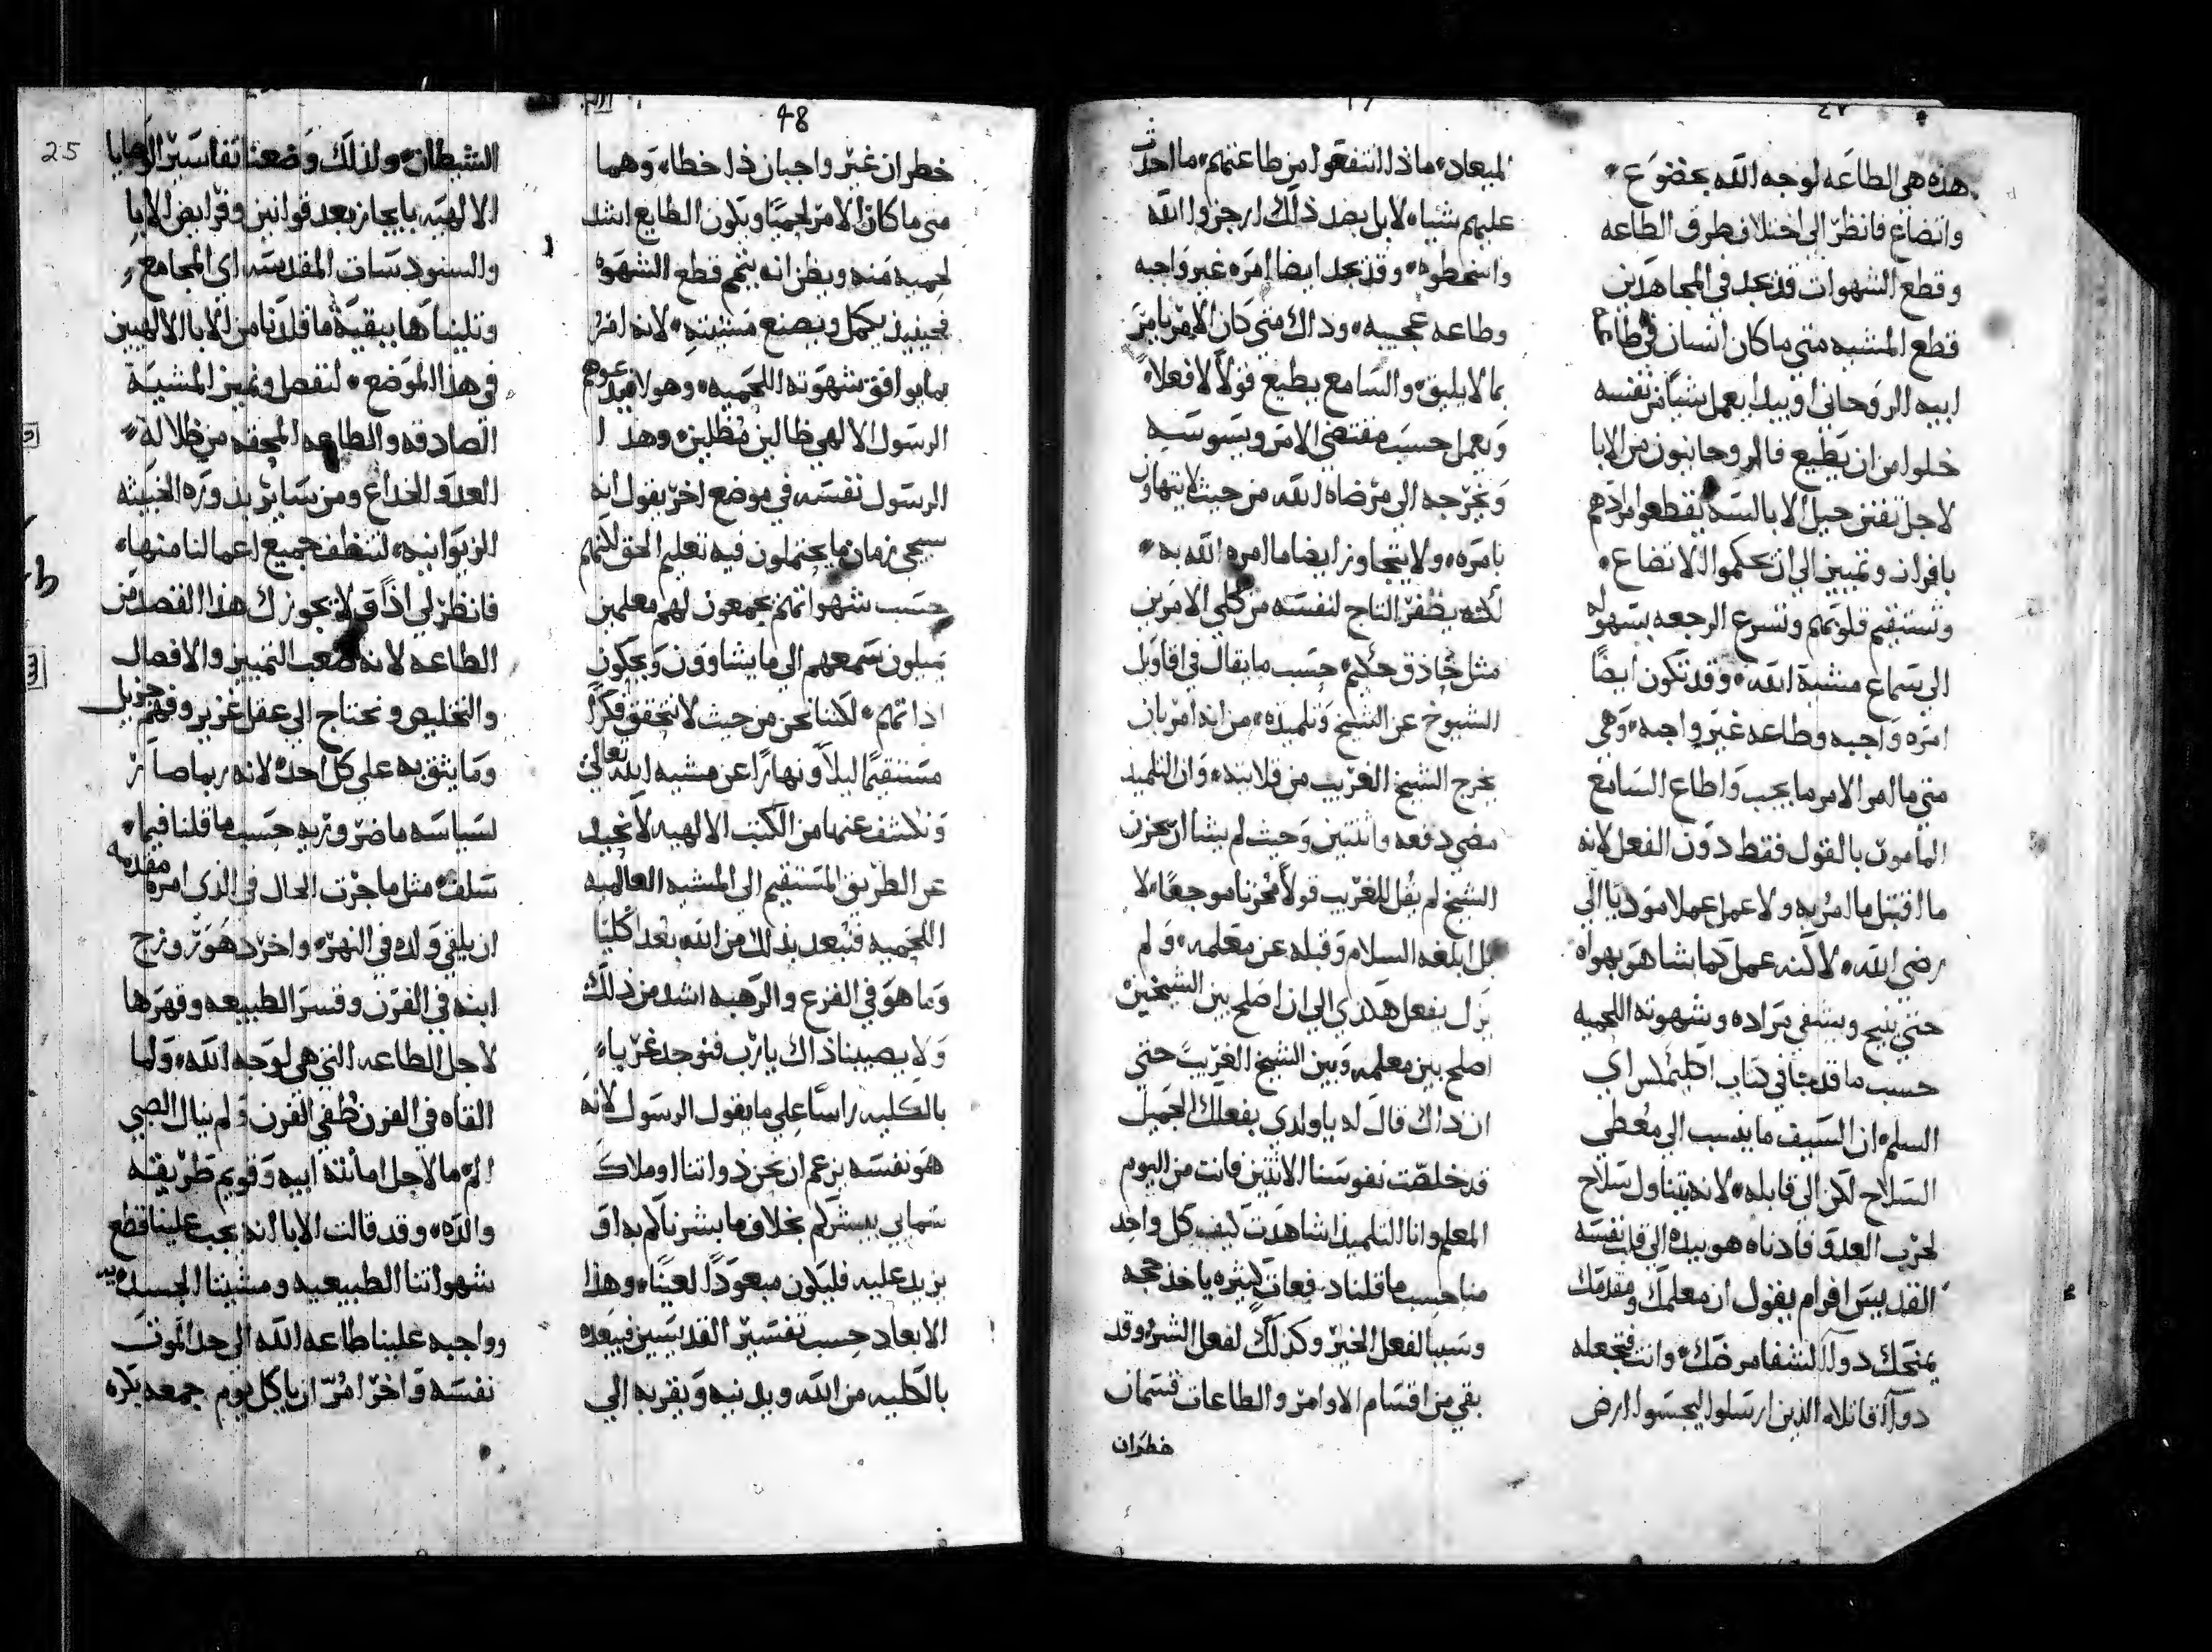 هذه هي الطاعه لوجه الله بخضوع
واتضاع فانظر الي اختلاف طرق الطاعه
وقطع الشهوات قد نجد في المجاهدين
قطع المشيه متي ما كان انسان في طاعة
ابيه الروحاني او يبدا يعمل شيا من نفسه
خلوا من ان يطيع فالروحانيون من الابا
لاجل تفنن حيل الابالسه يقطعوا مرادهم
بافراز وتمييز الي ان يحكموا الاتضاع
وتستقيم قلوبهم وتسرع الرجعه بسهوله
الي سماع مشية الله وقد تكون ايضا
امره واجبه وطاعه غير واجبه وهي
متي ما امر الامر ما يجب واطاع السامع
المامور بالقول فقط دون الفعل لانه
ما اقتبل ما امر به ولا عمل عملا موديا الي
رضي الله لاكنه عمل كما يشا هو بهواه
حتي ينيح ويشفي مراده وشهوته اللحميه
حسب ما قدمنا في كتاب اكليمكس اي
السلم ان السيف ما ينسب الي معطي
السلاح لكن الي قابله لانه يتناول سلاح
لحرب العدو فادناه هو بيده الي قلب نفسه
القديس افرام يقول ان معلمك ومقدمك
يمنحك دوآ لشفا مرضك وانت فتجعله
دوآ قاتلا الذين ارسلوا ليجسوا ارض
٤٧
الميعاد ماذا انتفعوا من طاعتهم ما احدث
عليهم شيا لا بل بضد ذلك ارجزوا الله
واسخطوه وقد نجد ايضا امره غير واجبه
وطاعه عجيبه وذاك متي كان الامر يامر
بما لا يليق والسامع يطيع قولا لا فعلا
ويعمل حسب مقتضي الامر ويسوسه
ويخرجه الي مرضاة الله من حيث لا يتهاون
بامره ولا يتجاوز ايضا ما امره الله به
لكنه يظفر التاج لنفسه من كلي الامرين
مثل حاذق حكيم حسب ما يقال في اقاويل
الشيوخ عن الشيخ وتلميذه من انه امر بان
يخرج الشيخ الغريب من قلايته وان التلميذ
مضي دفعه واثنتين وحيث لم يشا ان يحزن
الشيخ لم يقل للغريب قولا محزنا موجعا لا
بل ابلغه السلام وقبله عن معلمه ولم
يزل يفعل هكذي الي ان اصلح بين الشيخين
اصلح بين معلمه وبين الشيخ الغريب حتي
ان ذاك قال له ياولدي بفعلك الجميل
قد خلصت نفوسنا الاثنين فانت من اليوم
المعلم وانا التلميذ اشاهدت كيف كل واحد
منا حسب ما قلنا دفعات كثيره ياخذ حجه
وسببا لفعل الخير وكذلك لفعل الشر وقد
بقي من اقسام الاوامر والطاعات قسمان
خطران
48
خطران غير واجبان ذا خطا وهما
متي ما كان الامر لحميا ويكون الطايع اشد
لحميه منه ويظن انه يتم قطع الشهوه
فحينيذ يكمل ويصنع مشيته لانه امر
بما يوافق شهوته اللحميه وهولا يدعوهم
الرسول الالهي ضالين مضلين وهذا
الرسول نفسه في موضع اخر يقول انه
سيجي زمان ما يحتملون فيه تعليم الحق لكنهم
حسب شهواتهم يجمعون لهم معلمين
يميلون سمعهم الي ما يشاوون ويحكون
اذانهم لكننا نحن من حيث لا نتحقق فكرا
مستقيما ليلا ونهارا عن مشيه الله تعالي
ونكشف عنها من الكتب الالهيه لا نحيد
عن الطريق المستقيم الي المشيه العالميه
اللحميه فنبعد بذلك من الله بعدا كليا
وما هو في الفزع والرهبه اشد من ذلك
ولا يصيبنا ذاك يارب فنوجد غربا
بالكليه راسا علي ما يقول الرسول لانه
هو نفسه يزعم ان نحن ذواتنا او ملاك
سمايي يبشركم بخلاف ما بشرناكم به او
يزيد عليه فليكون مبعودا لعينا وهذا
الابعاد حسب تفسير القديسين فيبعده
بالكليه من الله ويدنيه ويقربه الي
25
الشيطان ولذلك وضعنا تفاسير الوصايا
الالهيه بايجاز بعد قوانين وفرايض الابا
والسنودسات المقدسه اي المجامع
وتليناها ببقية ما قلدنا من الابا الالهيين
في هذا الموضع لنفصل ونميز المشية
الصادقه والطاعه المحقه من ضلالة
العدو الخداع ومن ساير بذوره الخبيثه
الزيوانيه لننظف جميع اعمالنا منها
فانظر لي اذا ق لا يجوزك هذا الفصد من
الطاعه لانه صعب التمييز والافصال
والتخليص ونحتاج الي عقل غزير وفهم جزيل
وما يثق به علي كل احد لانه ربما صار
لسياسه ما ضروريه حسب ما قلنا فيما
سلف مثل ما جرت الحال في الذي امره مقدمه
ان يلقي ولده في النهر واخر دهور وزج
ابنه في الفرن وقسر الطبيعه وقهرها
لاجل الطاعه التي هي لوجه الله ولما
القاه في الفرن طفي الفرن ولم ينال الصبي
الم ما لاجل امانة ابيه وقويم طريقة
والده وقد قالت الابا انه يجب علينا قطع
شهواتنا الطبيعيه ومشيتنا الجسديه
وواجبه علينا طاعه الله الي حد الموت
نفسه واخر امر ان ياكل يوم جمعه بكره